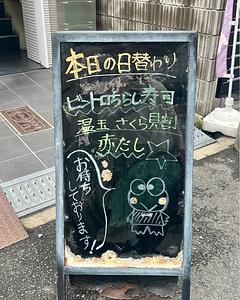 本日の日替わり
ビントロちらし寿司
温玉 さくら見割
赤だし
お待ち
しております!